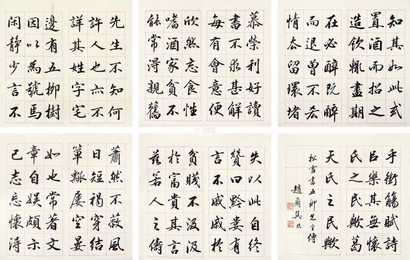 先生不知何
許人也亦不
詳其姓字宅
邊有五柳樹
因以為號焉
閑靜少言不
慕榮利好讀
書不求甚解
每有會意便
欣然忘食性
嗜酒家貧不
能常得親舊
知其如此或
置酒而招之
造飲輒盡期
在必醉既醉
而退曾不吝
情去留環堵
蕭然不蔽風
日短褐穿結
簞瓢屢空晏
如也常著文
章自娛頗示
己志忘懷得
失以此自終
贊曰黔婁有
言不戚戚於
貧賤不汲汲
於富貴其言
茲若人之儔
乎銜觴賦詩
以樂其志無
懷氏之民歟葛
天氏之民歟
松雪書五柳先生傳